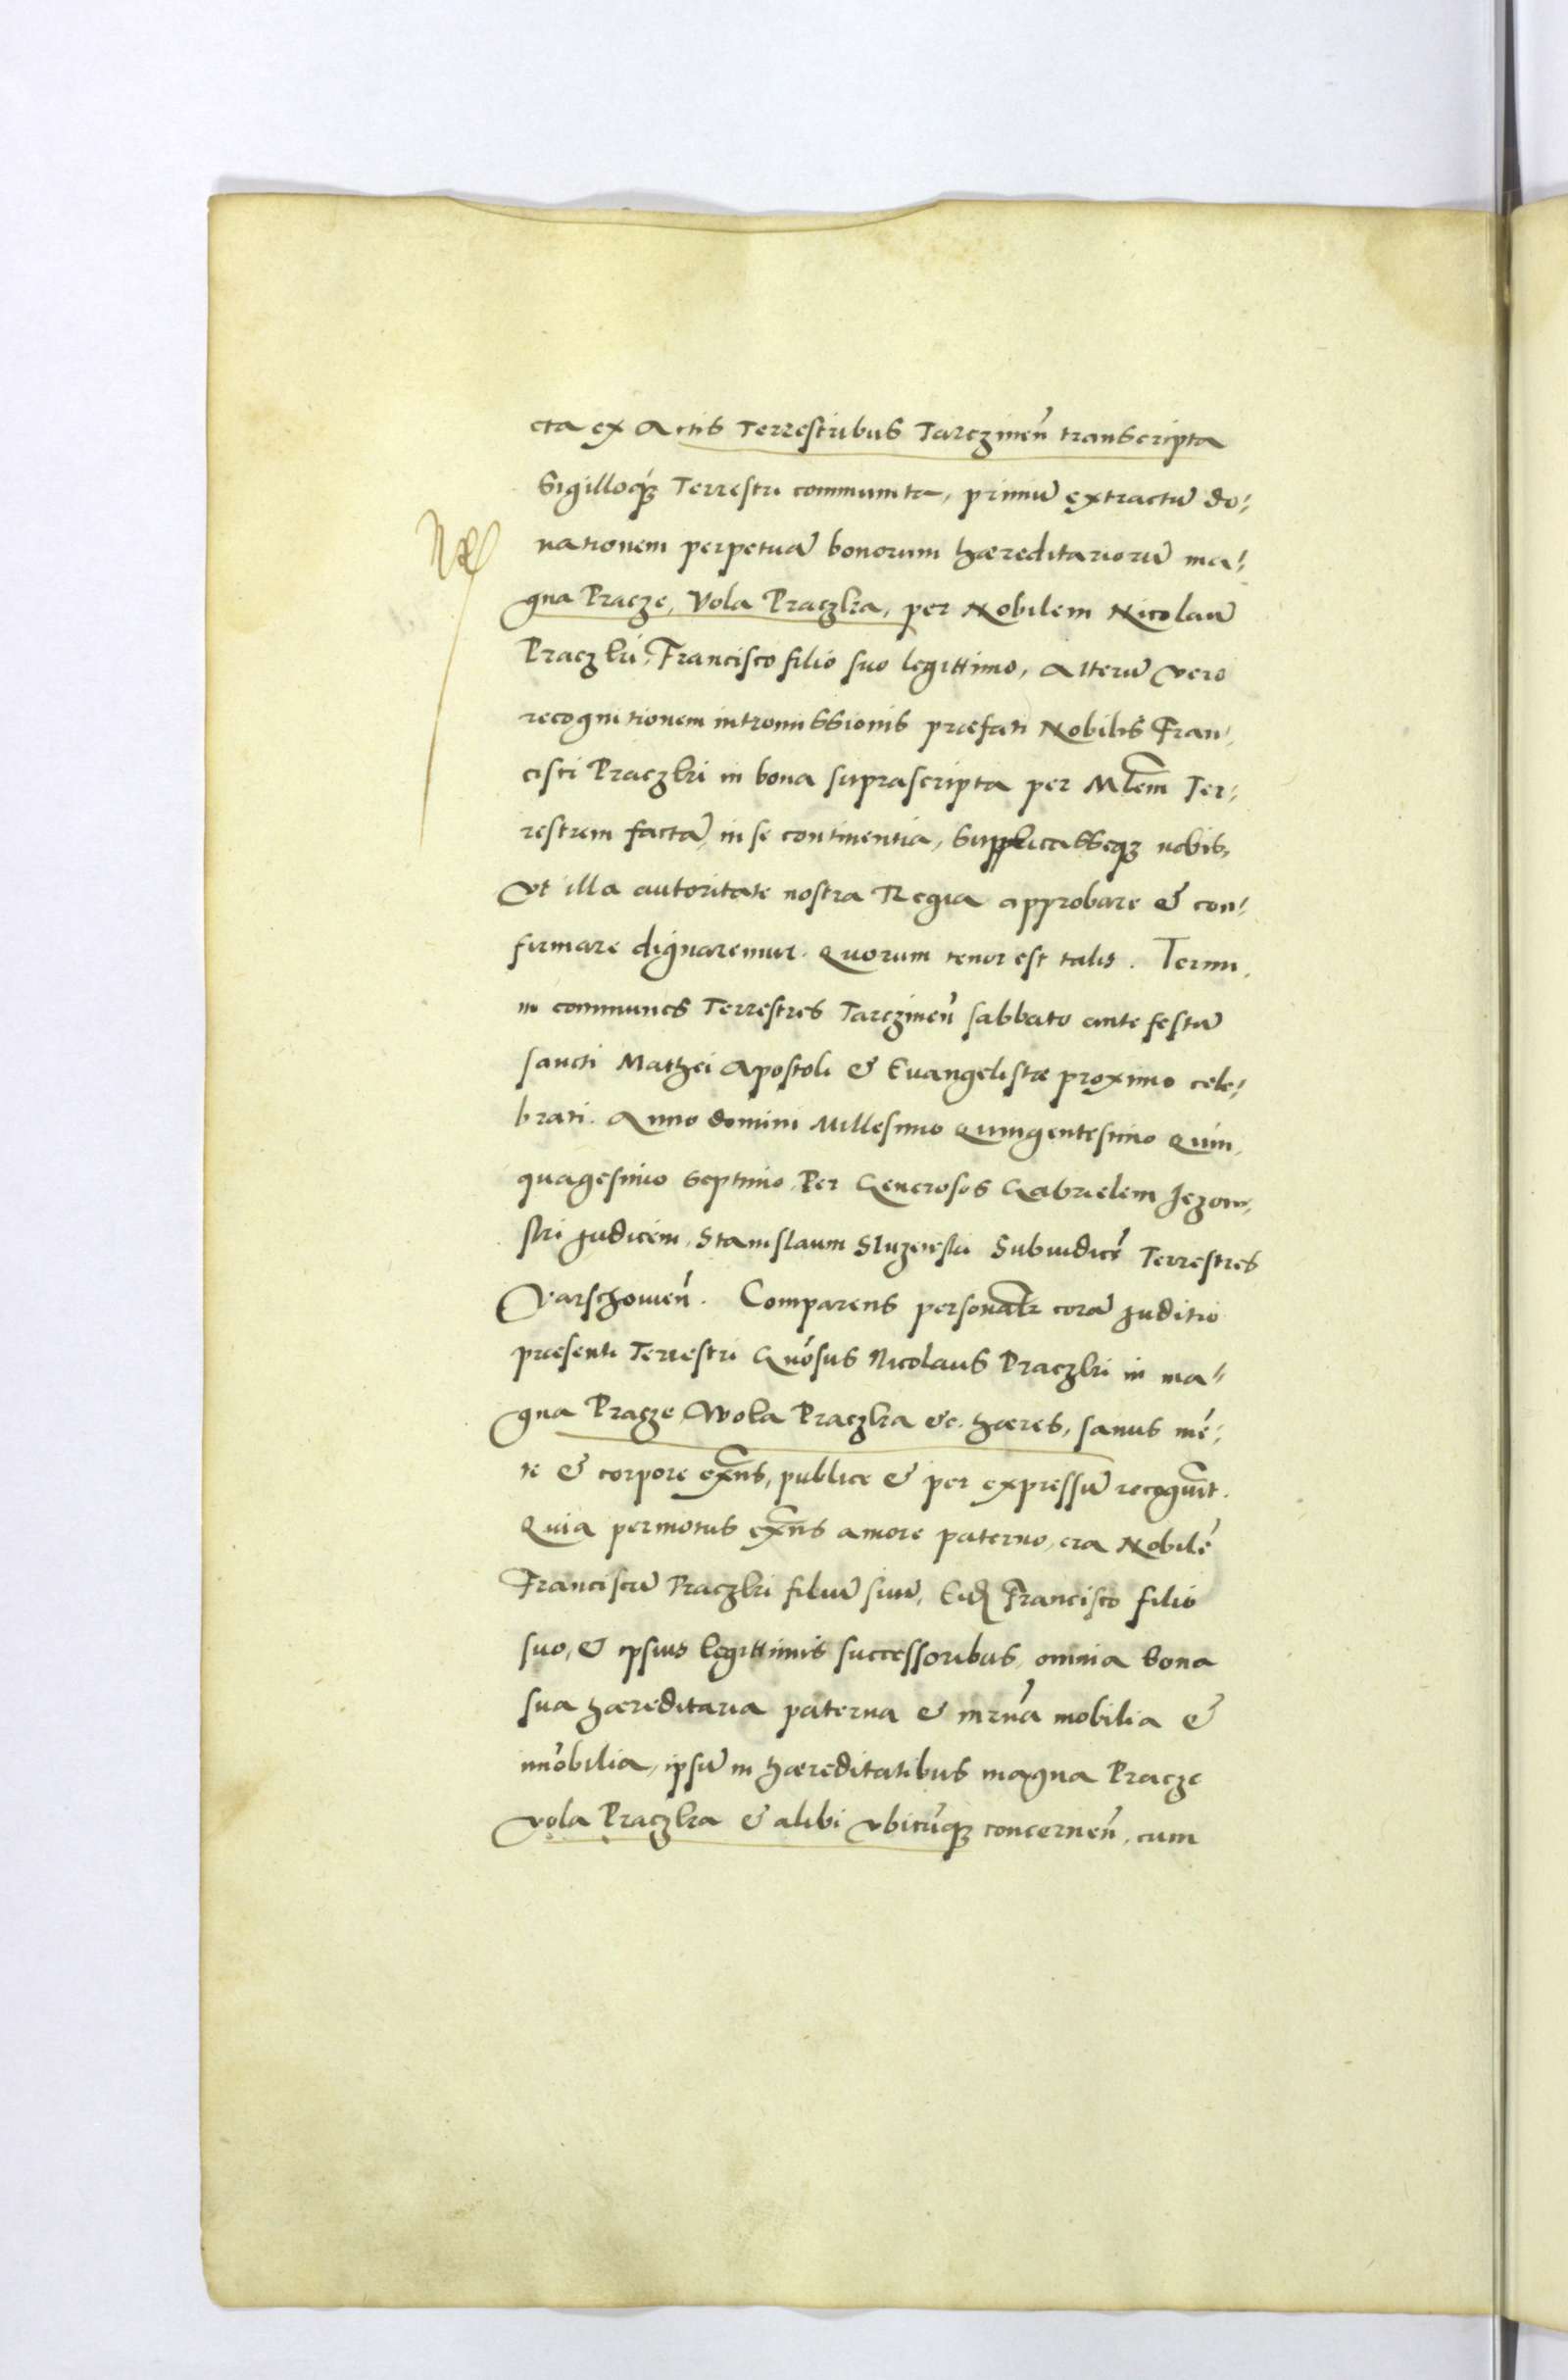 cta ex Actis Terrestribus Tarczineñ transcripta
Sigilloq́ꝫ Terrestri communita, primũ extractũ do-
Nᵃᵉ
nationem perpetuã bonorum hæreditariorũ ma-
gna Pracze, Vola Praczka, per Nobilem Nicolaũ
Praczki, Francisco filio suo legittimo, Alterũ vero
recognitionem intromissionis præfati Nobilis Fran-
cisci Praczki in bona suprascripta per Mľem Ter-
restrem factã, in se continentia, Supplicasseqꝫ nobis,
Vt illa autoritate nostra Regia approbare & con-
firmare dignaremur. Quorum tenor est talis. Termi-
ni communes Terrestres Tarczineñ sabbato ante festũ
sancti Mathei Apostoli & Euangelistæ proximo cele-
brati. Anno domini Millesimo Quingentesimo Quin-
quagesimo Septimo. Per Generosos Gabrielem Jezow-
ski Judicem, Stanislaum Sluzewski Subiudicẽ Terrestres
Varschouieñ. Comparens personalr̃ corã Juditio
præsenti Terrestri Gñosus Nicolaus Praczki in ma-
gna Pracze Wola Praczka &c. hæres, sanus mẽ-
te & corpore exñs, publice & per expressũ recognũit.
Quia permotus exñs amore paterno, era Nobilẽ
Franciscũ Praczki filiũ suũ, Eid̃ Francisco filio
suo, & ipsius legittimis successoribus, omnia bona
sua hæreditaria paterna & mr̃na mobilia &
im̃obilia, ipsũ in hæreditatibus magna Pracze
Vola Praczka & alibi vbicũqꝫ concerneñ, cum